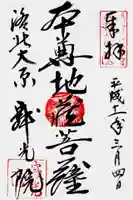 奉拝
平成十二年三月四日
本尊地蔵菩薩
洛北大原
寂光院